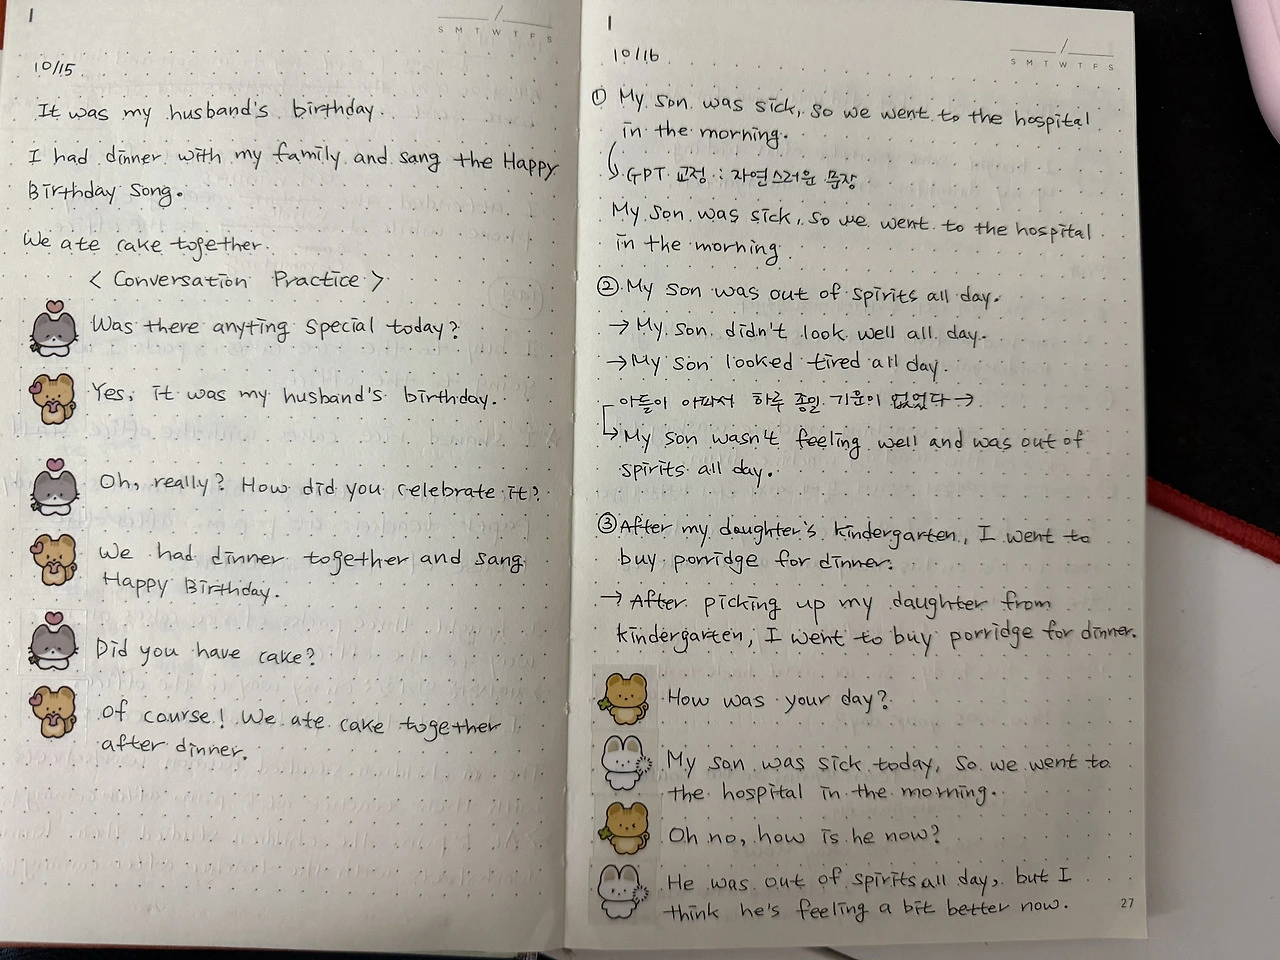 1
/
S M T W T F S
10/15
It was my husband's birthday.
I had dinner with my family and sang the Happy
Birthday song.
We ate cake together.
< Conversation Practice >
Was there anyting special today?
Yes, it was my husband's birthday.
Oh, really? How did you celebrate it?
We had dinner together and sang
Happy Birthday.
Did you have cake?
Of course! We ate cake together
after dinner.
1
/
S M T W T F S
10/16
① My son was sick, so we went to the hospital
in the morning.
GPT 교정 : 자연스러운 문장
My son was sick, so we went to the hospital
in the morning
② My son was out of spirits all day.
→ My son didn't look well all day.
→ My son looked tired all day.
아들이 아파서 하루 종일 기운이 없었다 →
My son wasn't feeling well and was out of
spirits all day.
③ After my daughter's kindergarten, I went to
buy porridge for dinner.
→ After picking up my daughter from
kindergarten, I went to buy porridge for dinner.
How was your day?
My son was sick today, so we went to
the hospital in the morning.
Oh no, how is he now?
He was out of spirits all day, but I
think he's feeling a bit better now.
27